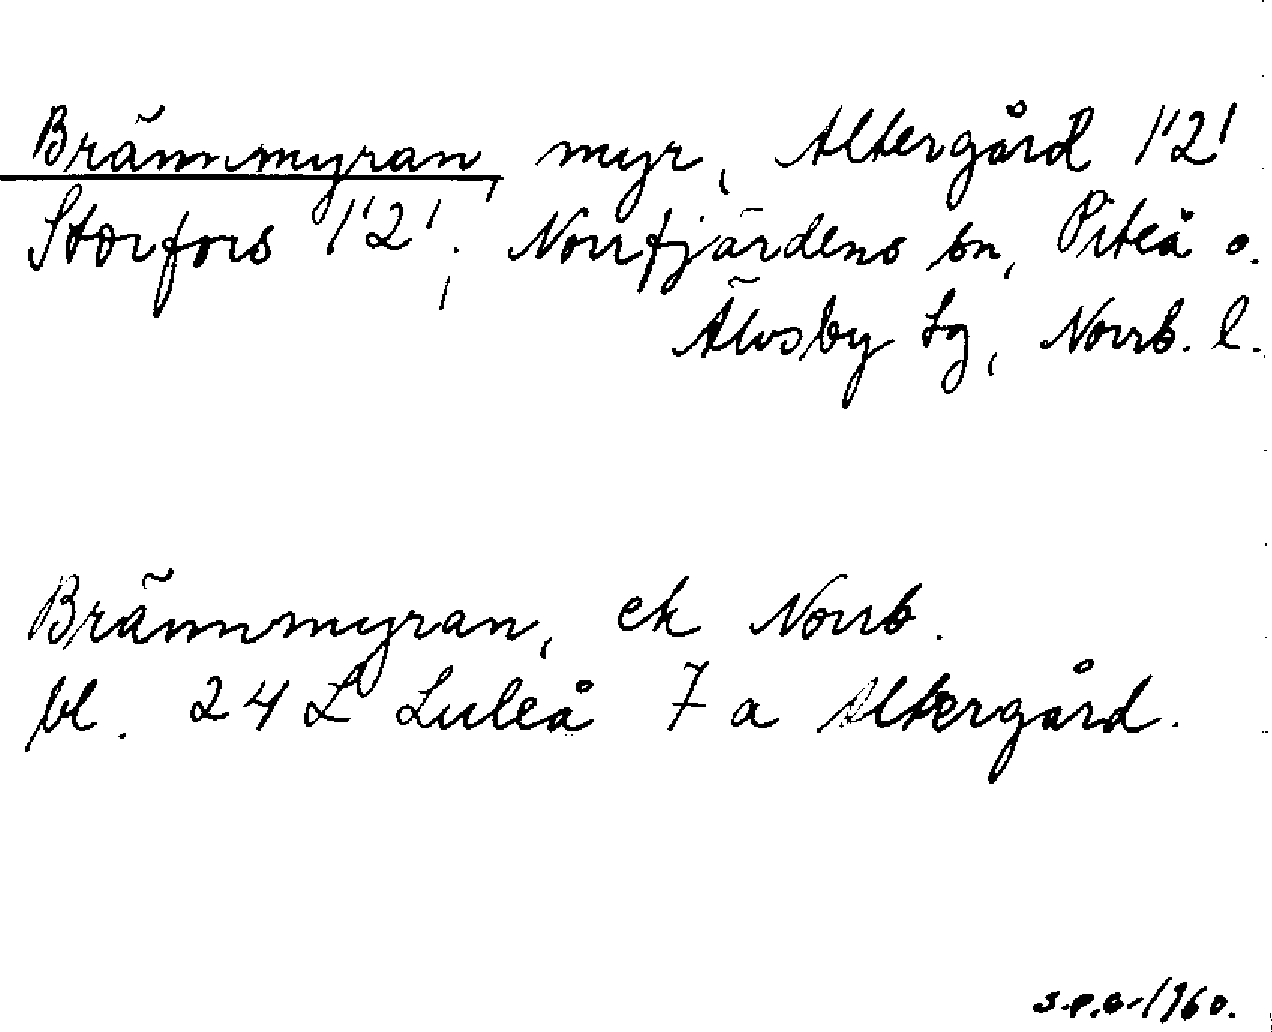 Brännmyran, myr, Altergård 1'2'
Storfors 1'2'; Norrfjärdens sn, Piteå o.
Älvsby lg, Norrb. l.
Brännmyran, ek Norrb.
bl. 24 L Luleå 7 a Altergård.
S.P.O-1960.